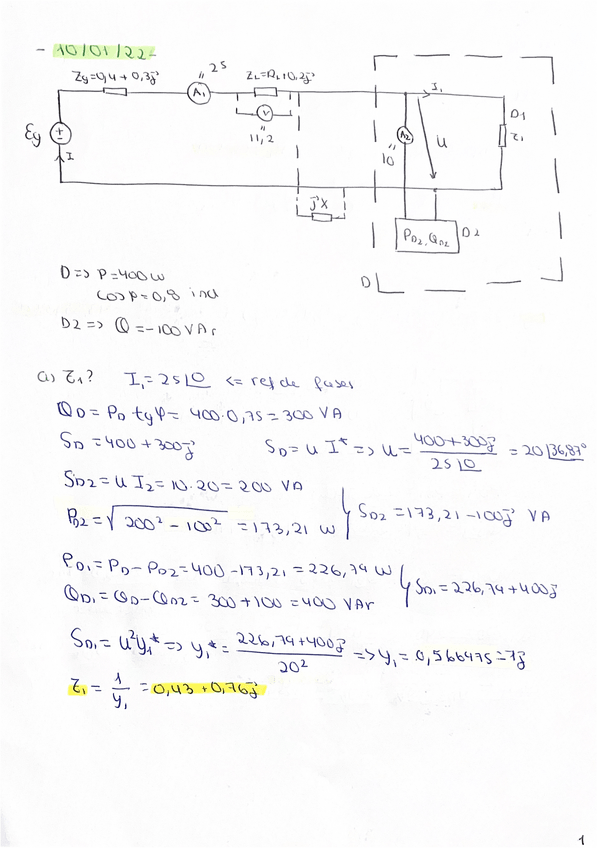 - 10/01/22-
Zg=0,4+0,3j
25
ZL=RL+0,2j
A1
V
11,2
I1
D1
Eg
I
A2
10
U
Z1
jX
PD2, QD2
D2
D
D => P=400W
cos φ=0,8 ind
D2 => Q=-100VAr
a) Z1? I1=25|0 <= ref de fases
QD = PD tgφ = 400·0,75 = 300 VA
SD = 400+300j SD = U I* => U = 400+300j / 25|0 = 20|36,87°
SD2 = U I2 = 10·20 = 200 VA
PD2 = √200²-100² = 173,21 W
SD2 = 173,21-100j VA
PD1 = PD-PD2 = 400-173,21 = 226,79 W
QD1 = QD-QD2 = 300+100 = 400 VAr
SD1 = 226,79+400j
SD1 = U²Y1* => Y1* = 226,79+400j / 20² => Y1 = 0,566975-1j
Z1 = 1/Y1 = 0,43+0,76j
1